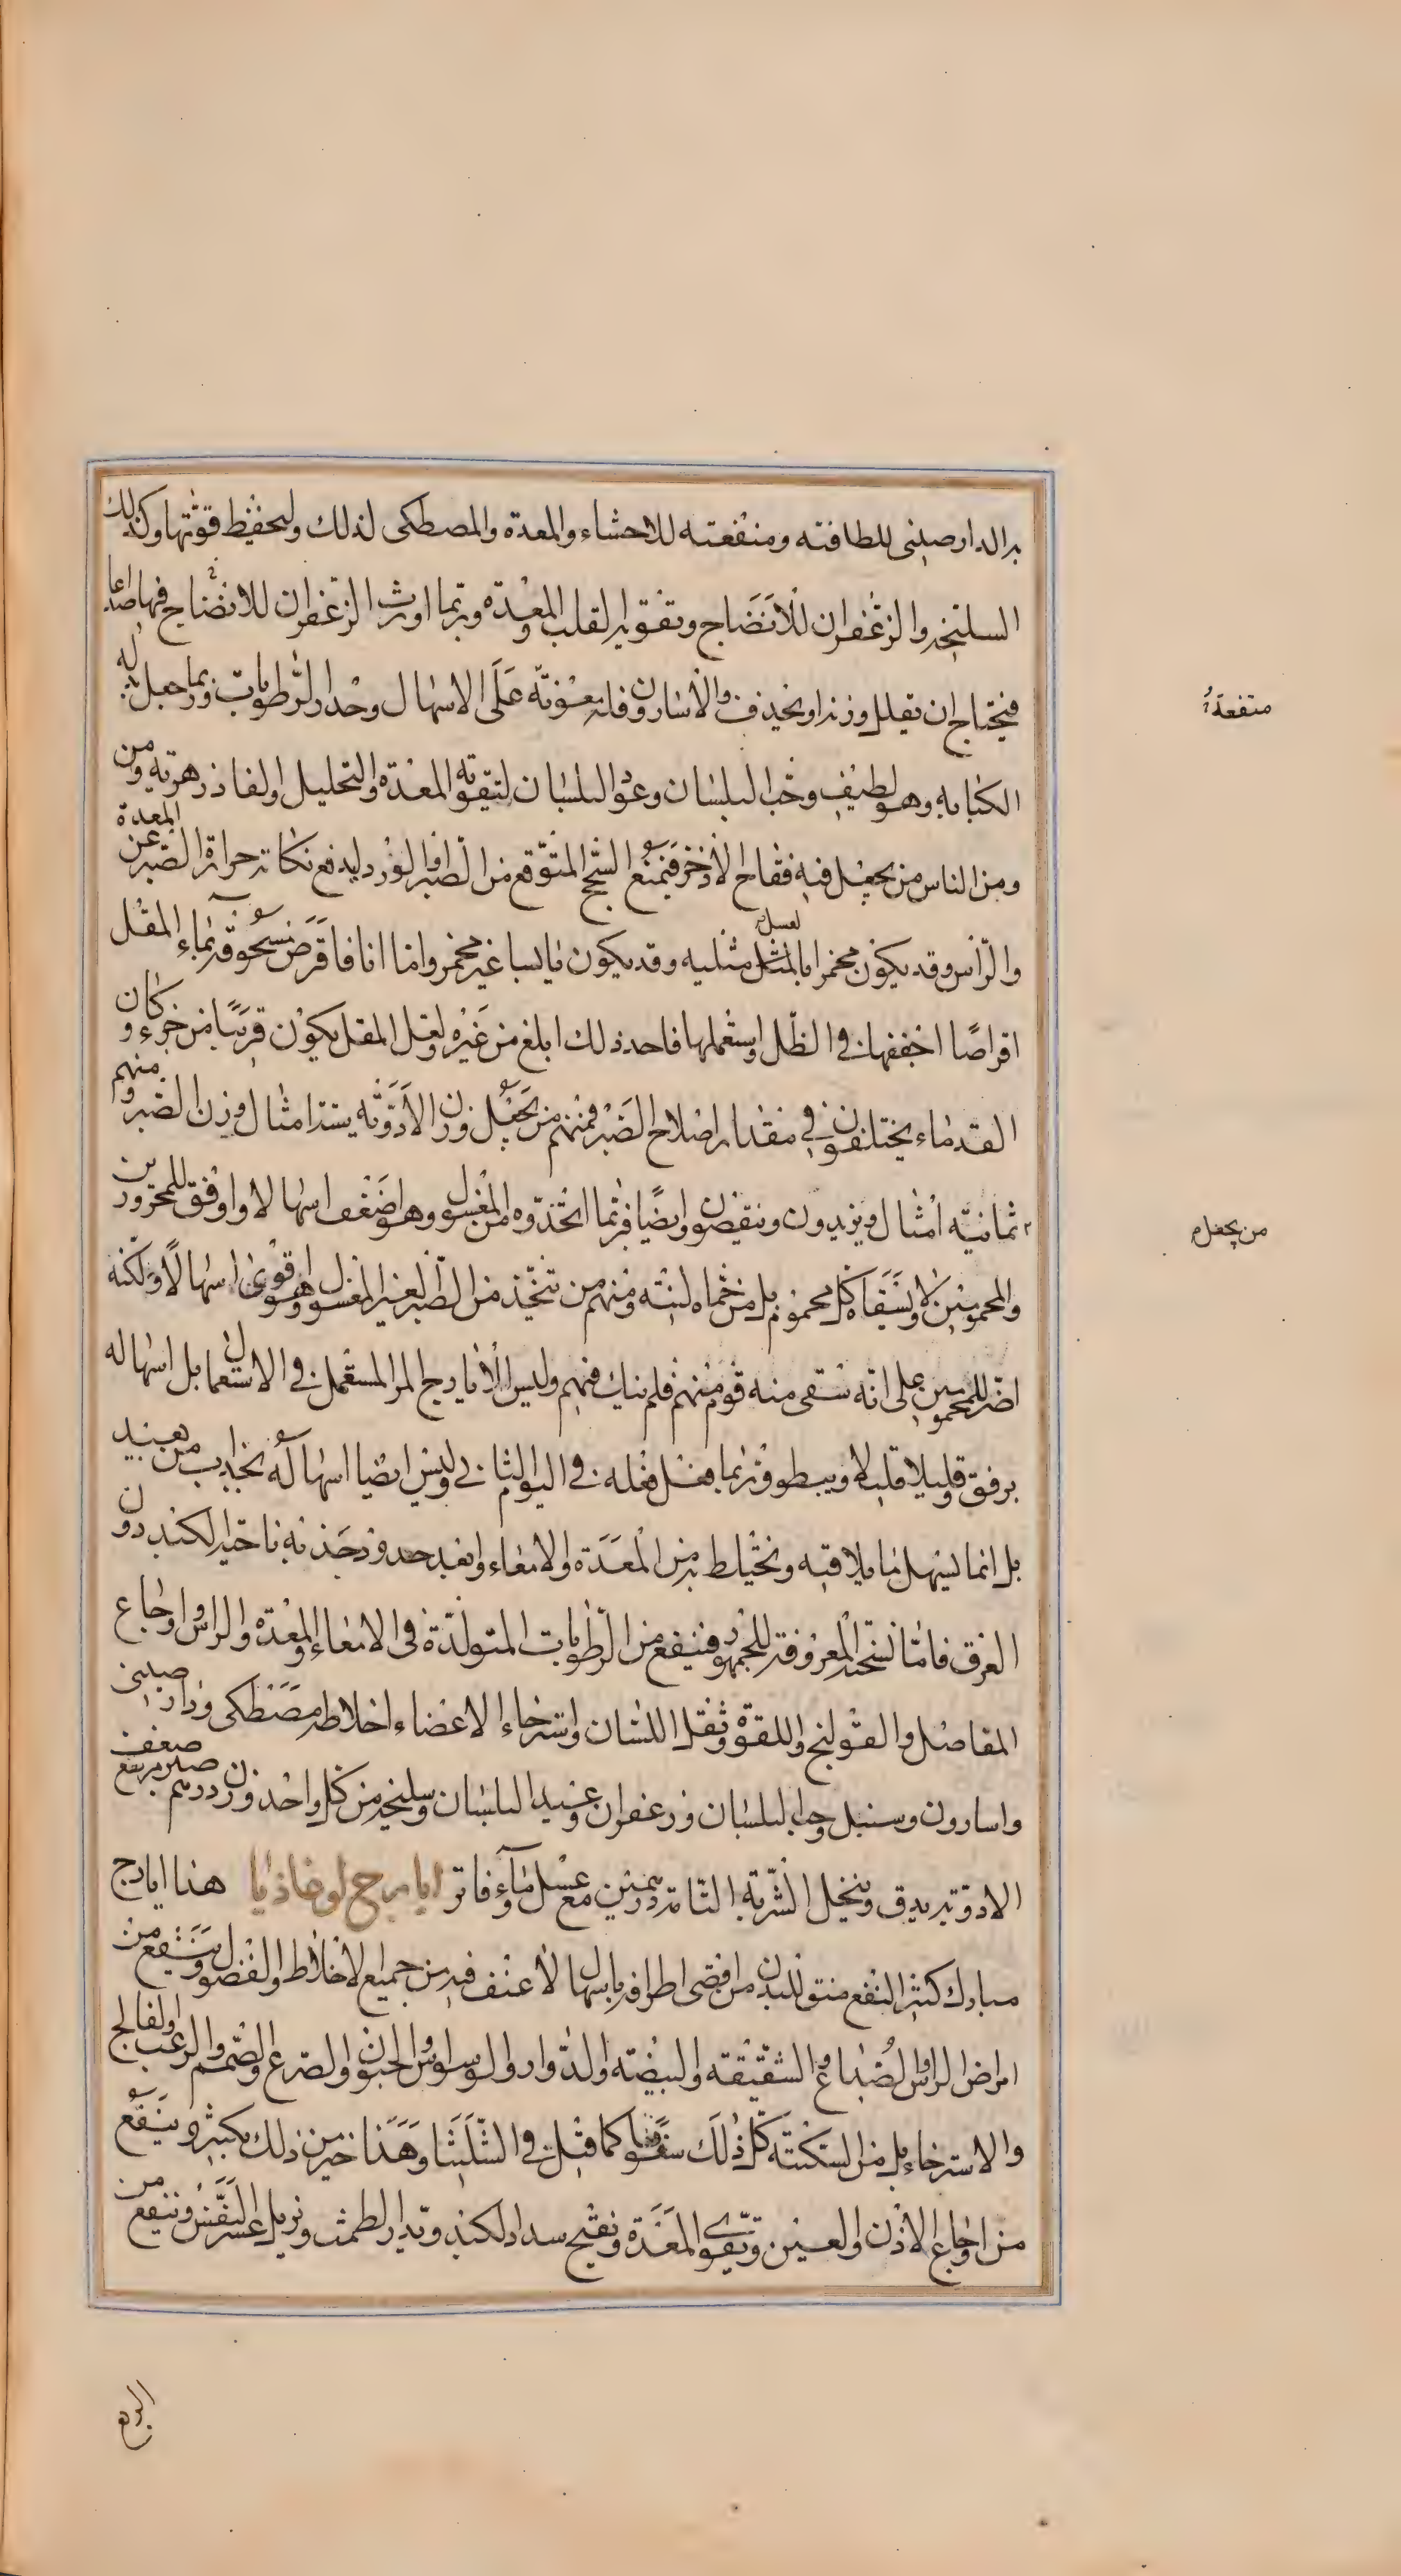 به الدارصيني للطافته ومنفعته للاحشاء والمعدة والمصطكى لذلك وليحفظ قوتها وكذلك
السليخه والزعفران للانضاج وتقويه القلب والمعدة وربما اورث الزعفران للانضاج فيها صداعا
فيحتاج ان يقلل وزنه او يحذف والاسارون فلمعونته على الاسهال وحدار الرطوبات وربما جعل بدله
الكبابه وهو لطيف وحب البلسان وعود البلسان لتقويه المعدة والتحليل ولفاذ زهريه ومن
ومن الناس من يجعل فيه فقاح الاذخر فيمنع السحج المتوقع من الصبر والورد ليدفع نكايه حرارة الصبر عن المعدة
والراس وقد يكون مخمرا بالعسل مثليه وقد يكون يابسا غير مخمر واما انا فاقرض مسحوقه بماء المقل
اقراصا اجففها في الظل واستعملها فاجد ذلك ابلغ من غيره ولعل المقل يكون قريبا من جزء وكان
القدماء يختلفون في مقدار اصلاح الصبر فمنهم من يجعل وزن الادويه ستة امثال وزن الصبر ومنهم
ثمانيه امثال ويزيدون وينقصون وايضا فربما اتخذوه من المغسول وهو اضعف اسهالا واوفق للمحرورين
والمحمومين لا ونسقاه كل محموم بل من حماه لينته ومنهم من يتخذ من الصبر الغير المغسول وهو اقوى اسهالا ولكنه
اضر للمحمومين على انه سقى منه قوم منهم فلم ينك فيهم وليس الايارج المر المستعمل في الاستعمال بل اسهاله
برفق وقليلا قليلا ويبطو وربما فعل فعله في اليوم الثاني وليس ايضا اسهاله بجذاب من بعيد
بل انما يسهل ما يلاقيه ويختلط به من المعدة والامعاء وابعد حدود جذبه ناحيه الكبد دون
العرق فاما نسخته المعروفه للجمهور فينفع من الرطوبات المتولدة في الامعاء والمعدة والراس واوجاع
المفاصل والقولنج واللقوة وثقل اللسان واسترخاء الاعضاء اخلاطه مصطكى ودارصيني
واسارون وسنبل وحب البلسان وزعفران وعيد البلسان وسليخه من كل واحد وزن درهم صبر مرتفع ضعف
الادويه يدق وينخل الشربه التامه درهمين مع عسل وماء فاتر ايارج لوغاذيا هذا ايارج
مبارك كثير النفع منق للبدن من اقصى اطرافه باسهال لا عنف فيه من جميع الاخلاط والفضول وينفع من
امراض الراس والصداع والشقيقه والبيضه والدوار والوسواس والجنون والصرع والصمم والرعب والفالج
والاسترخاء بل من السكتته كل ذلك سعوطا كما قيل في الشليثا وهذا خير من ذلك بكثير وينفع
من اوجاع الاذن والعينين ويقوي المعدة ويفتح سدد الكبد ويدر الطمث ويزيل عسر النفس وينفع من
منفعة
من يجعل